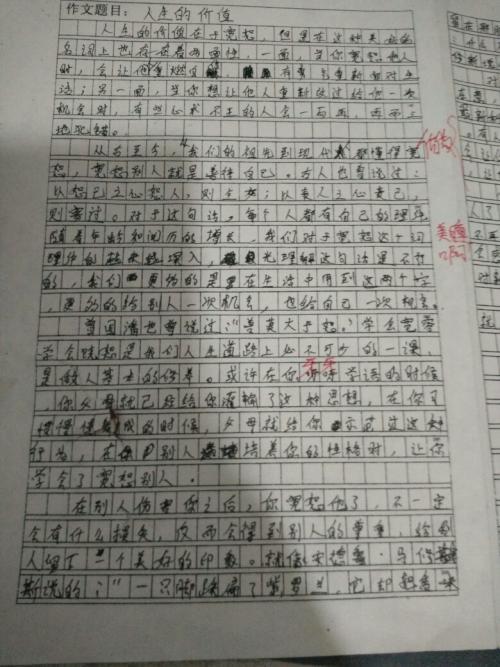 作文题目：人生的价值
人生的价值在于宽恕，但是在这种美好的
名词上也存在着两面性，一面，当你宽恕他人
时，会让他重燃，有勇气重新面对生
活；另一面，当你想让他人重新改过给他一次
机会时，有些心术不正的人会一而再，再而三
地犯错。
从古至今，我们的祖先到现代都懂得宽
恕，宽恕别人就是善待自己。古人也曾说过：
以恕己之心恕人，则全交；以责人之心责己，
则寡过。对于这句话，每个人都有自己的理解
随着年龄和阅历的增长，我们对于宽恕这个词
理解的越来越深入，光理解这句话是不行
的，我们更多的是在生活中用到这两个字
，更多的给别人一次机会，也给自己一次机会。
曾国藩也曾说过："善莫大于恕。"学会宽容
学会饶恕是我们人生道路上必不可少的一课，
是做人基本的修养。或许在你牙牙学语的时候
，你父母就已经给你灌输了这种思想，在你习
惯慢慢成的时候，父母就给你示范过这种
行为，在别人培养你的性格时，让你
学会了宽恕别人。
在别人伤害你之后，你宽恕他了，不一定
会有什么损失，反而会得到别人的尊重，给别
人留下一个美好的印象。就像安德鲁·马修斯
斯说的："一只脚踩扁了紫罗兰，它却把香